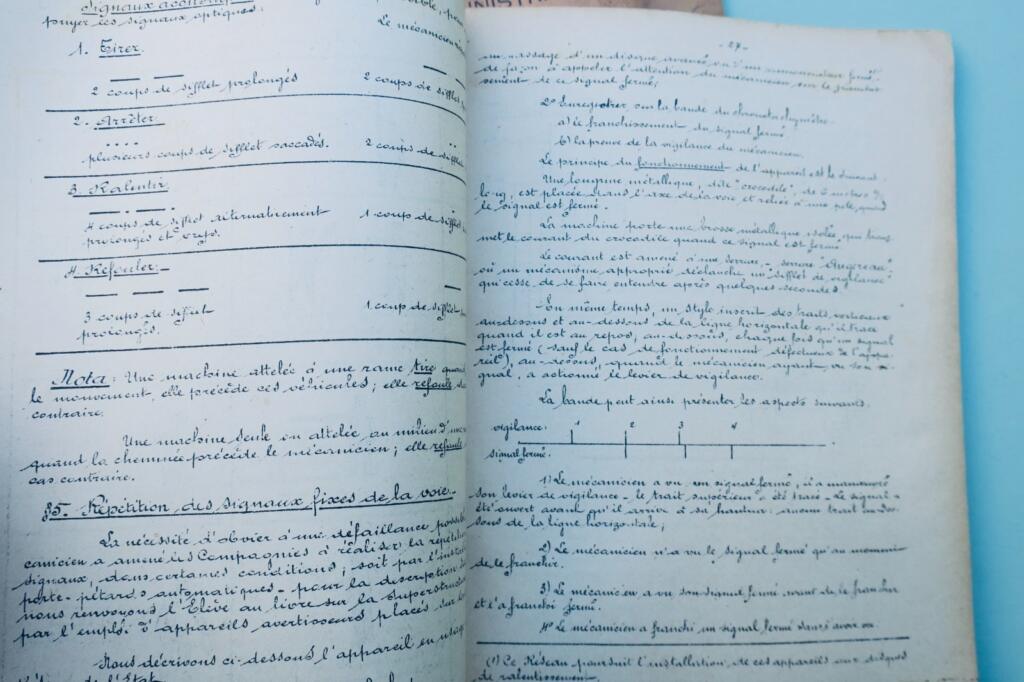 Signaux acoust
puyer les signaux optiques:
Le mécanicien
1. Tirer.
2 coups de sifflet prolongés
2 coups de sifflet
2. Arrêter.
plusieurs coups de sifflet saccadés.
2 coups de siffle
3. Ralentir
4 coups de sifflet alternativement
1 coup de si
prolongés et brefs.
4. Refouler:-
3 coups de sifflet
1 coup de sifflet
prolongés.
Nota: Une machine attelée à une rame tire quand
le mouvement, elle précède ces véhicules; elle refoule
contraire.
Une machine seule ou attelée au milieu d'une
quand la cheminée précède le mécanicien; elle refoule
cas contraire.
§5. Répétition des signaux fixes de la voie-
La nécessité d'obvier à une défaillance possi
canicien a amené les Compagnies à réaliser la répétit
signaux, dans certaines conditions; soit par l'insta
porte-pétards automatiques- pour la description
nous renvoyons l'Elève au livre sur la Superstruc
par l'emploi d'appareils avertisseurs placés sur
Nous décrivons ci-dessous l'appareil en usage
l'Etat
-27-
un passage d'un disque avancé ou d'un fermé
de façon à appeler l'attention du mécanicien sur le franchis
sement de ce signal fermé;
2° Enregistrer sur la bande du chronotachymètre
a) le franchissement du signal fermé
b) la preuve de la vigilance du mécanicien.
Le principe du fonctionnement de l'appareil est le suivant.
Une longrine métallique, dite "crocodile", de 2 mètres de
long, est placée dans l'axe de la voie et reliée à une pile, quand
le signal est fermé.
La machine porte une brosse métallique isolée, qui trans
met le courant du crocodile quand ce signal est fermé
Le courant est amené à une serrure- serrure "Augereau"
où un mécanisme approprié déclanche un "sifflet de vigilance"
qui cesse de se faire entendre après quelques secondes.
En même temps, un style inscrit des traits verticaux
au-dessous et au-dessus de la ligne horizontale qu'il trace
quand il est au repos; au-dessous, chaque fois qu'un signal
est fermé (sauf le cas de fonctionnement défectueux de l'appa-
reil), au-dessus, quand le mécanicien ayant vu son si-
gnal, a actionné le levier de vigilance.
La bande peut ainsi présenter les aspects suivants.
vigilance: 1 2 3 4
signal fermé.
1) Le mécanicien a vu un signal fermé, il a manœuvré
son levier de vigilance- le trait supérieur a été tracé- Le signal a
été ouvert avant qu'il arrive à sa hauteur: aucun trait au-des-
sous de la ligne horizontale;
2) Le mécanicien n'a vu le signal fermé qu'au moment
de le franchir.
3) Le mécanicien a vu son signal fermé avant de le franchir
et l'a franchi fermé.
4° Le mécanicien a franchi un signal fermé sans l'avoir vu.
(1) Ce Réseau poursuit l'installation de ces appareils aux disques
de ralentissement.